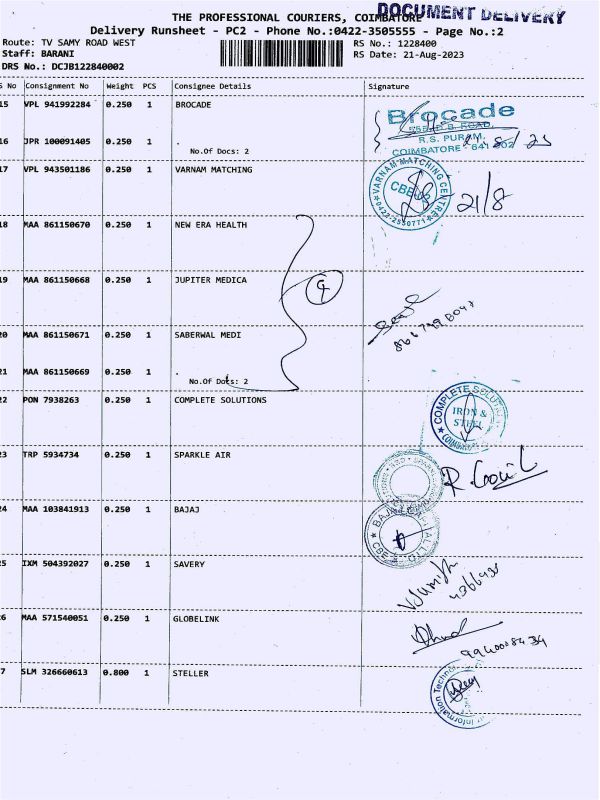 THE PROFESSIONAL COURIERS, COIMBATORE
DOCUMENT DELIVERY
Delivery Runsheet - PC2 - Phone No.:0422-3505555 - Page No.:2
Route: TV SAMY ROAD WEST RS No.: 1228400
Staff: BARANI RS Date: 21-Aug-2023
DRS No.: DCJB122840002
S No Consignment No Weight PCS Consignee Details Signature
15 VPL 941992284 0.250 1 BROCADE
Brocade
R.S. PURAM,
COIMBATORE - 641 002
16 JPR 100091405 0.250 1 .
No.Of Docs: 2
17 VPL 943501186 0.250 1 VARNAM MATCHING
VARNAM MATCHING CENTRE
CBE-2
0422-2550771
21/8
18 MAA 861150670 0.250 1 NEW ERA HEALTH
19 MAA 861150668 0.250 1 JUPITER MEDICA
20 MAA 861150671 0.250 1 SABERWAL MEDI
21 MAA 861150669 0.250 1 .
No.Of Docs: 2
22 PON 7938263 0.250 1 COMPLETE SOLUTIONS
COMPLETE SOLUTIONS
IRON &
STEEL
23 TRP 5934734 0.250 1 SPARKLE AIR
24 MAA 103841913 0.250 1 BAJAJ
BAJAJ
25 IXM 504392027 0.250 1 SAVERY
26 MAA 571540051 0.250 1 GLOBELINK
9940008434
27 SLM 326660613 0.800 1 STELLER
Information Techno